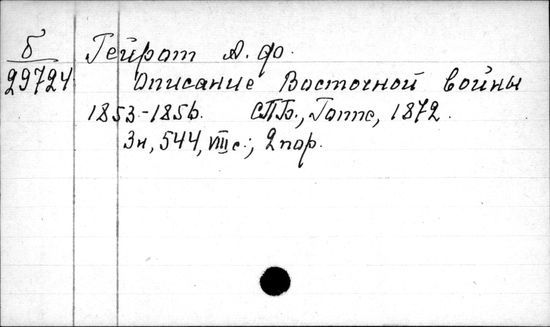 Б
29724
Гейрот А. Ф.
Описание Восточной войны
1853-1856. СПБ., Гоппе, 1872.
3н, 544, VIII с.; 2 пор.